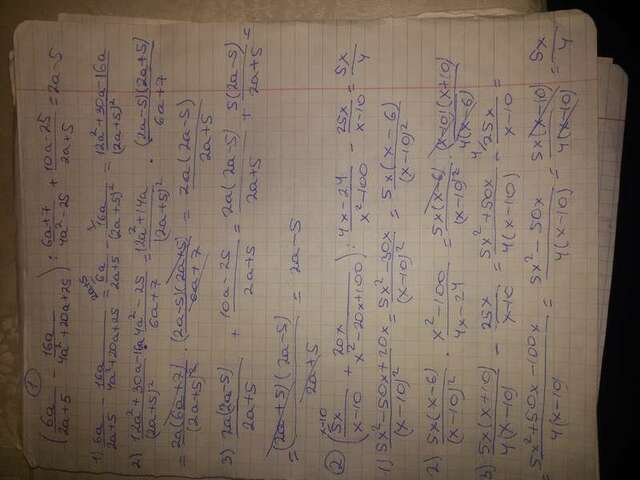 ①
(6a/2a+5 - 16a/4a²+20a+25) : 6a+7/4a²-25 + 10a-25/2a+5 = 2a-5
1) 6a/2a+5 - 16a/4a²+20a+25 = 6a/2a+5 - 16a/(2a+5)² = 12a²+30a-16a/(2a+5)²
2) 12a²+30a-16a/(2a+5)² · 4a²-25/6a+7 = 12a²+14a/(2a+5)² · (2a-5)(2a+5)/6a+7
= 2a(6a+7)/(2a+5)² · (2a-5)(2a+5)/6a+7 = 2a(2a-5)/2a+5
3) 2a(2a-5)/2a+5 + 10a-25/2a+5 = 2a(2a-5)/2a+5 + 5(2a-5)/2a+5 =
= (2a+5)(2a-5)/2a+5 = 2a-5
② (5x/x-10 + 20x/x²-20x+100) : 4x-24/x²-100 - 25x/x-10 = 5x/4
1) 5x²-50x+20x/(x-10)² = 5x²-30x/(x-10)² = 5x(x-6)/(x-10)²
2) 5x(x-6)/(x-10)² · x²-100/4x-24 = 5x(x-6)/(x-10)² · (x-10)(x+10)/4(x-6)
3) 5x(x+10)/4(x-10) - 25x/x-10 = 5x²+50x/4(x-10) - 4/25x/x-10 =
= 5x²+50x-100x/4(x-10) = 5x²-50x/4(x-10) = 5x(x-10)/4(x-10) = 5x/4